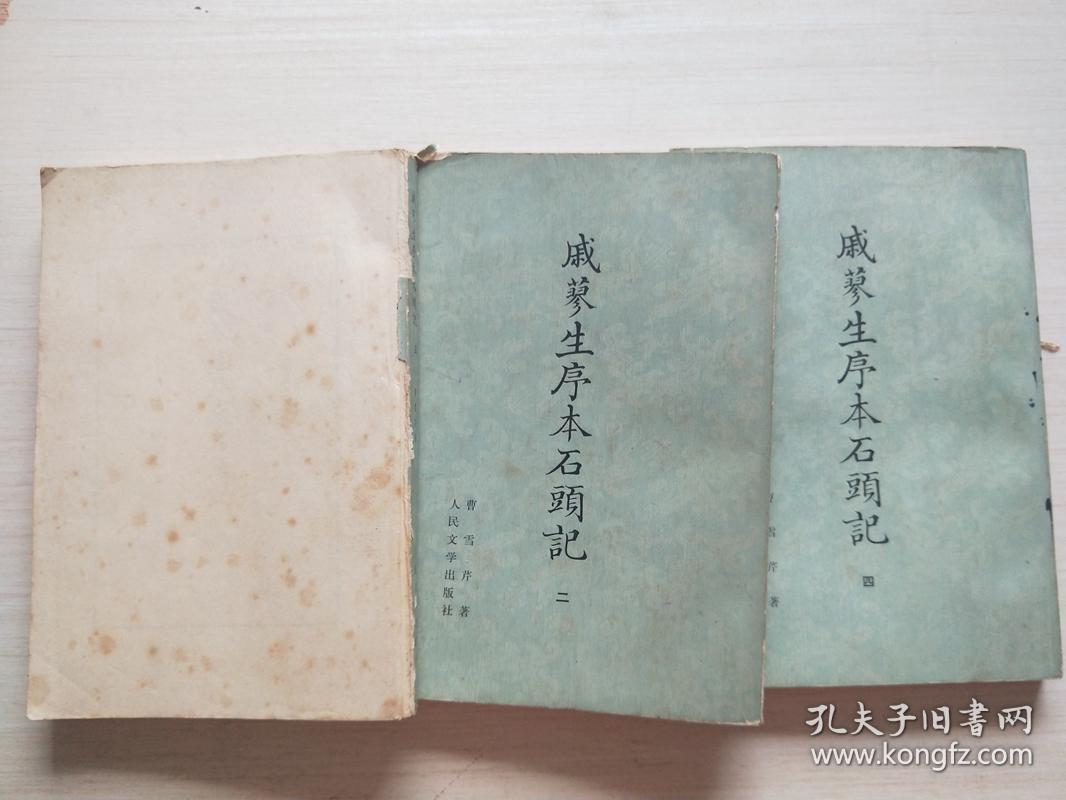 戚蓼生序本石頭記
二
曹雪芹著
人民文学出版社
戚蓼生序本石頭記
四
雪芹著
孔夫子旧书网
www.kongfz.com